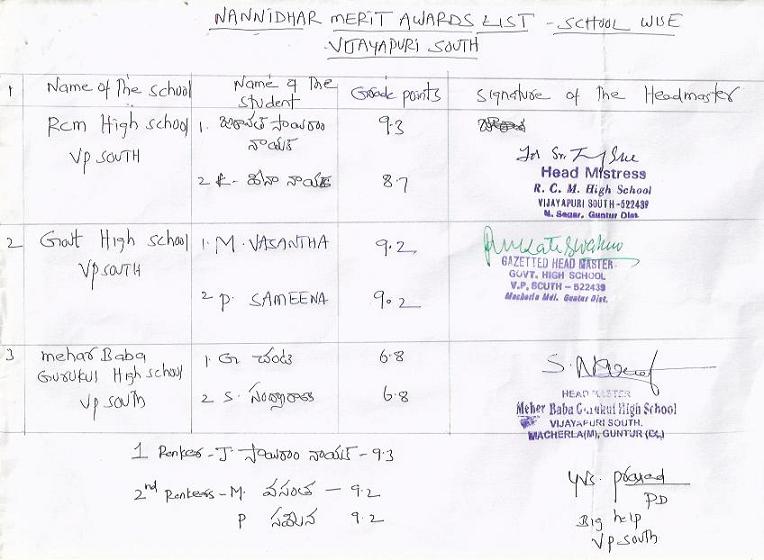 NANNIDHAR MERIT AWARDS LIST - SCHOOL WISE
VIJAYAPURI SOUTH
1 Name of The school Name of The student Grade points Signature of The Headmaster
Rcm High school
VP SOUTH
1. సాయిరాం
నాయక్
9.3
2 నాయక్ 8.7
for Sr.
Head Mistress
R. C. M. High School
VIJAYAPURI SOUTH-522439
N. Sagar, Guntur Dist.
2 Govt High school
VP SOUTH
1. M. VASANTHA 9.2
2 P. SAMEENA 9.2
GAZETTED HEAD MASTER
GOVT. HIGH SCHOOL
V.P. SOUTH - 522439
Macherla Mdl. Guntur Dist.
3 mehar Baba
Gurukul High school
VP SOUTH
1. G. 6.8
2 S. 6.8
HEAD MASTER
Meher Baba Gurukul High School
VIJAYAPURI SOUTH.
MACHERLA(M), GUNTUR (Dt.)
1 Ranker - J. సాయిరాం నాయక్ - 9.3
2nd Rankers - M. వసంత - 9.2
P సమీన 9.2
YVS. prasad
PD
Big help
VP south